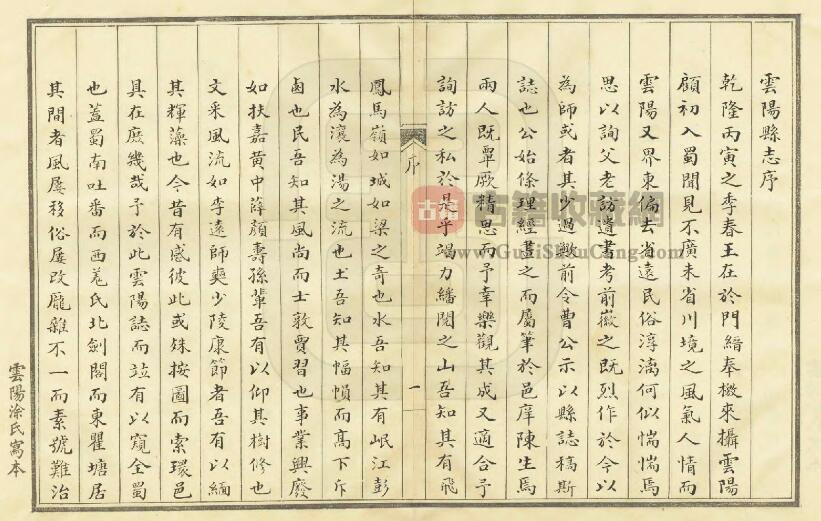 雲陽縣志序
乾隆丙寅之季春王在於門縉奉檄來攝雲陽
顧初入蜀聞見不廣未省川境之風氣人情而
雲陽又界東偏去省遠民俗淳漓何似惴惴焉
思以詢父老訪遺書考前徽之既烈作於今以
為師或者其少過歟前令曹公示以縣誌稿斯
誌也公始條理經畫之而屬筆於邑庠陳生馬
兩人既覃厥精思而予幸樂觀其成又適合予
詢訪之私於是乎竭力繙閱之山吾知其有飛
序
一
鳳馬嶺如城如梁之奇也水吾知其有岷江彭
水為瀼為湯之流也土吾知其幅幀而高下斥
鹵也民吾知其風尚而士敦賈習也事業興廢
如扶嘉黃中薛顏壽孫輩吾有以仰其樹修也
文采風流如李遠師奭少陵康節者吾有以緬
其輝藻也今昔有感彼此或殊按圖而索環邑
具在庶幾哉予於此雲陽誌而竝有以窺全蜀
也蓋蜀南吐番而西羌氏北劍閣而東瞿塘居
其間者風屢移俗屢改龐雜不一而素號難治
雲陽涂氏寫本
古籍
古籍收藏網
www.GuJiShuCang.com